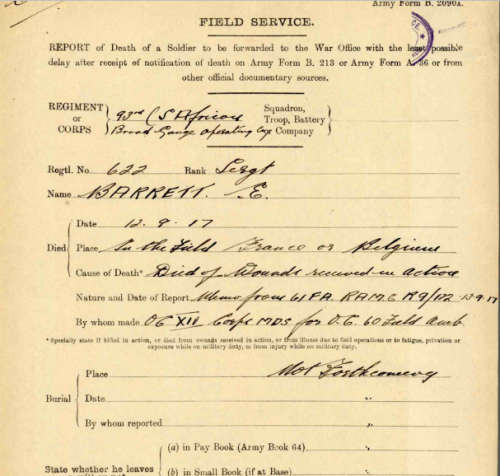 Army Form B. 2090A.
FIELD SERVICE.
REPORT of Death of a Soldier to be forwarded to the War Office with the least possible
delay after receipt of notification of death on Army Form B. 213 or Army Form A. 36 or from
other official documentary sources.
REGIMENT or CORPS } 93rd (S African Squadron, Troop, Battery
Broad Gauge Operating Coy Company
Regtl. No. 622 Rank Sergt
Name BARRETT. E.
Died { Date 12.9.17
Place In the Field France or Belgium
Cause of Death* Died of Wounds received in action
Nature and Date of Report Memo from 61 FA. RAMC 13.9.17
By whom made OC XIX Corps MDS for O.C. 60 Field Amb
*Specially state if killed in action, or died from wounds received in action, or from illness due to field operations or to fatigue, privation or
exposure while on military duty, or from injury while on military duty.
Burial { Place Not Forthcoming
Date "
By whom reported "
State whether he leaves
(a) in Pay Book (Army Book 64) "
(b) in Small Book (if at Base) "